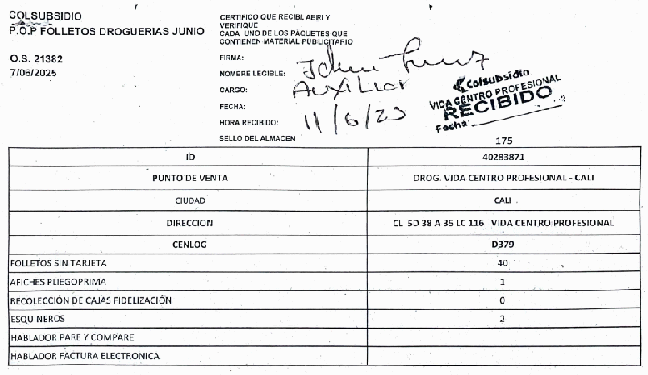 COLSUBSIDIO
P.O.P FOLLETOS DROGUERIAS JUNIO
O.S. 21382
7/06/2025
CERTIFICO QUE RECIBI, ABRI Y
VERIFIQUE
CADA UNO DE LOS PAQUETES QUE
CONTIENEN MATERIAL PUBLICITARIO
FIRMA:
NOMBRE LEGIBLE:
CARGO: Auxiliar
FECHA:
HORA RECIBIDO:
SELLO DEL ALMACEN
Colsubsidio
VIDA CENTRO PROFESIONAL
RECIBIDO
Fecha:
175
ID 40283871
PUNTO DE VENTA DROG. VIDA CENTRO PROFESIONAL - CALI
CIUDAD CALI
DIRECCION CL 5D 38 A 35 LC 116 VIDA CENTRO PROFESIONAL
CENLOG D379
FOLLETOS SIN TARJETA 40
AFICHES PLIEGOPRIMA 1
RECOLECCIÓN DE CAJAS FIDELIZACIÓN 0
ESQUINEROS 2
HABLADOR PARE Y COMPARE
HABLADOR FACTURA ELECTRONICA